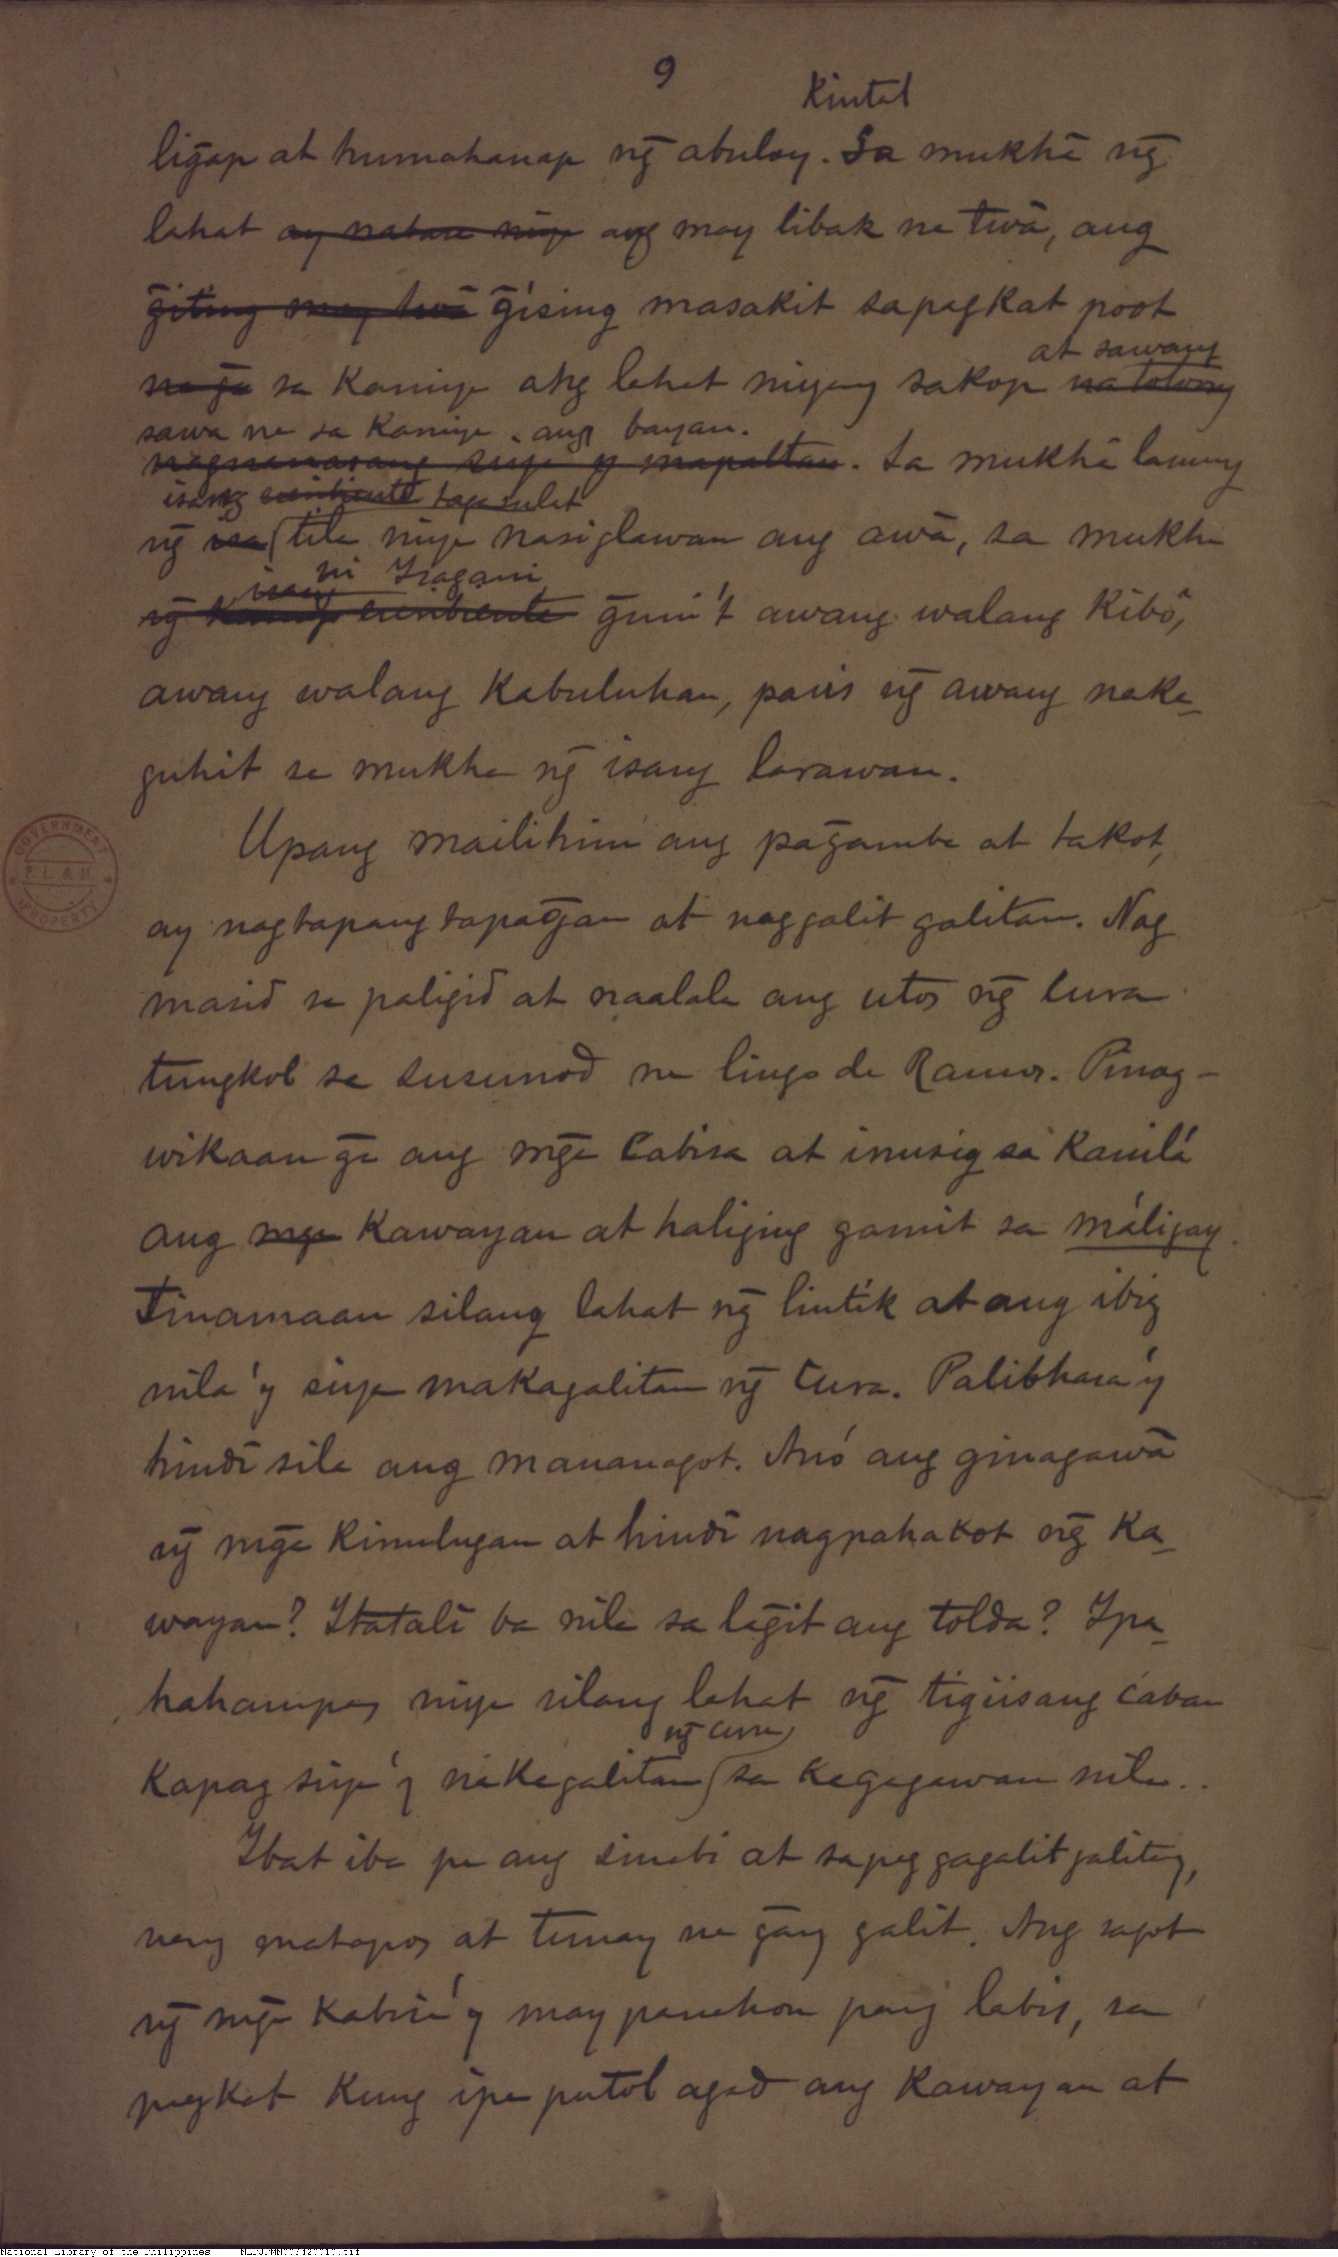 9
Kintal
lig̃ap at humahanap ng̃ abuloy. Sa mukhâ ng̃
lahat ay nataas niya ang may libak na tiwâ, ang
g̃iting may twâ g̃ising masakit sapagkat poot
at sawang
na g̃a sa kaniya ang lahat niyang sakop
sawa na sa kaniya ang bayan.
nagnanasang siya y mapaltan. Sa mukhâ lamang
isang escribiente taga sulat
ng̃ isa tila niya nasiglawan ang awâ, sa mukha
isang ni Isagani
ng̃ kaniya escribiente g̃uni't awang walang kibô,
awang walang kabuluhan, paris ng̃ awang naka-
guhit sa mukha ng̃ isang larawan.
Upang mailihim ang pag̃amba at takot,
ay nagtapangtapag̃an at naggalit galitan. Nag
masid sa paligid at naalala ang utos ng̃ cura
tungkol sa susunod na lingo de Ramos. Pinag-
wikaan g̃a ang mg̃a Cabisa at inusig sa kanilá
ang mga kawayan at haliging gamit sa máligay.
Tinamaan silang lahat ng̃ lintik at ang ibig
nila'y siya makagalitan ng̃ Cura. Palibhasa'y
hindî sila ang mananagot. Anó ang ginagawâ
ng̃ mg̃a kinulugan at hindî nagpahakot ng̃ ka-
wayan? Itatalî ba nila sa lag̃it ang tolda? Ipa-
hahampas niya silang lahat ng̃ tigiisang caban
ng̃ cura
kapag siya'y nakagalitan sa kagagawan nila..
Ibat iba pa ang sinabi at sapag gagalit galitan,
nang matapos at tunay na g̃ang galit. Ang sagot
ng̃ mg̃a kabisa'y may panahon pang labis, sa
pagkat kung ipa putol agad ang kawayan at
GOVERNMENT PROPERTY
P.L.&M.
National Library of the Philippines